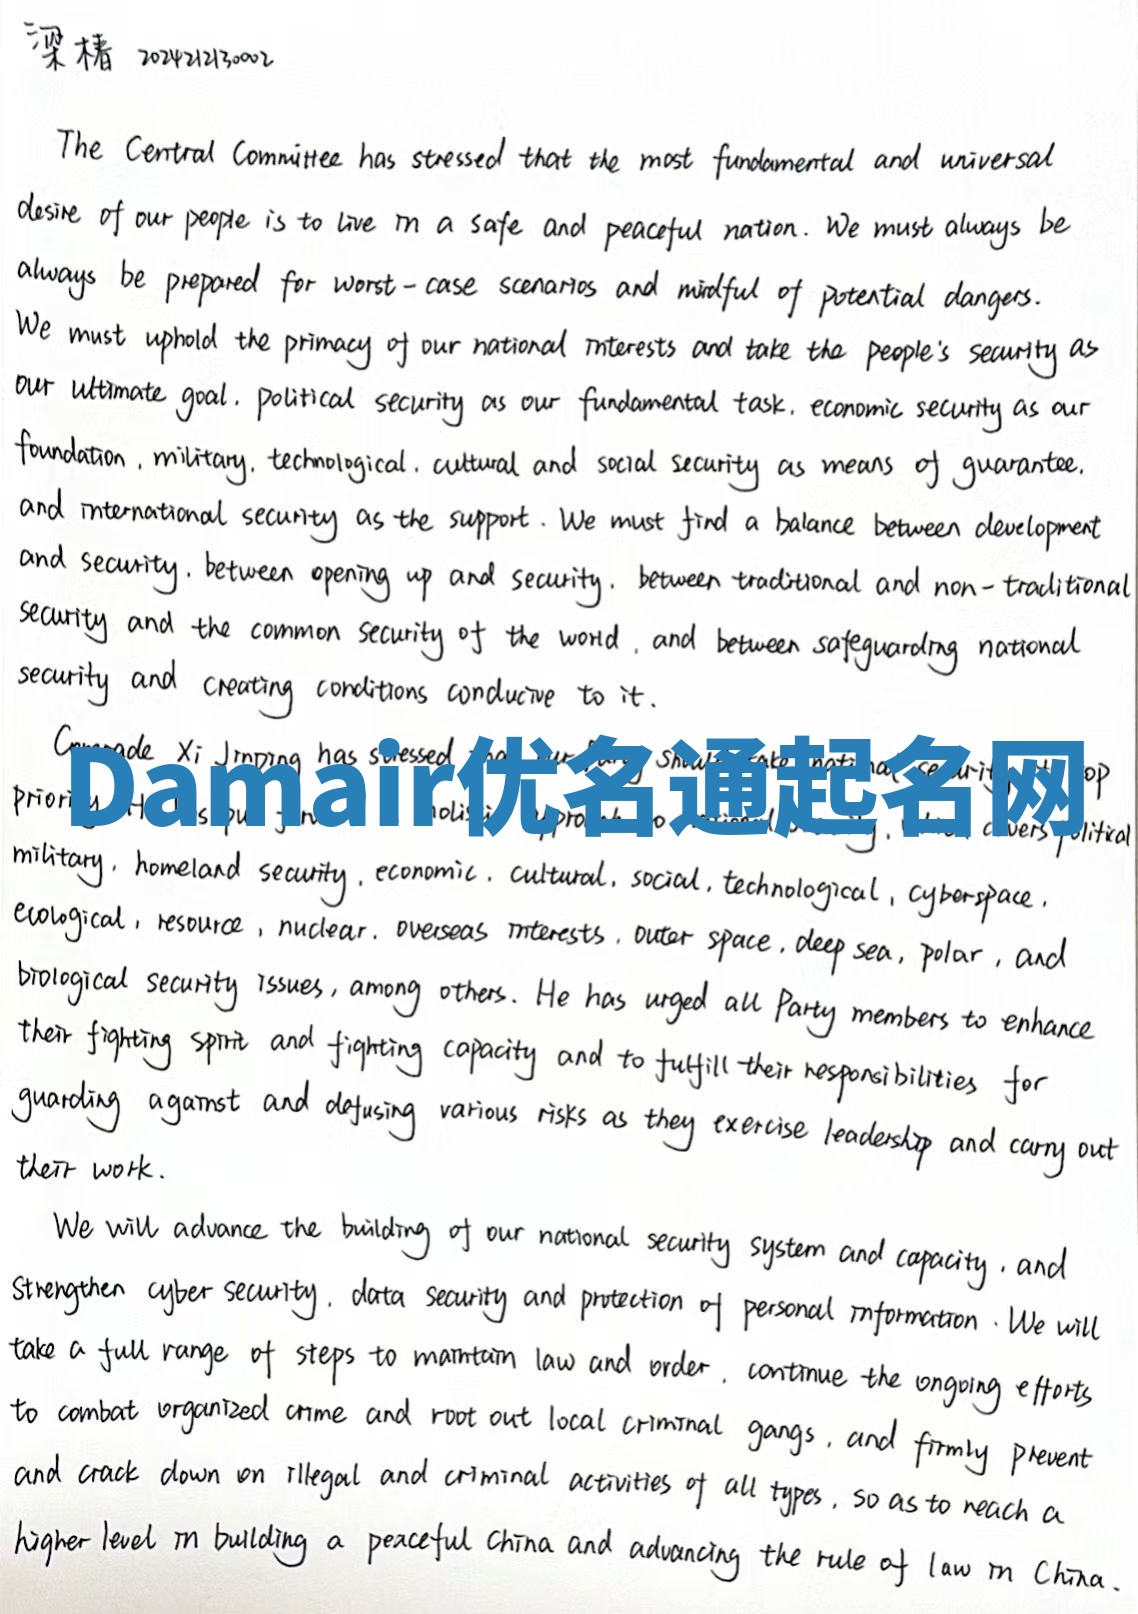 梁椿 2024212130002
The Central Committee has stressed that the most fundamental and universal
desire of our people is to live in a safe and peaceful nation. We must always be
always be prepared for worst-case scenarios and mindful of potential dangers.
We must uphold the primacy of our national interests and take the people's security as
our ultimate goal, political security as our fundamental task, economic security as our
foundation, military, technological, cultural and social security as means of guarantee,
and international security as the support. We must find a balance between development
and security, between opening up and security, between traditional and non-traditional
security and the common security of the world, and between safeguarding national
security and creating conditions conducive to it.
Xi Jinping has stressed
Damair优名通起名网
political
military, homeland security, economic, cultural, social, technological, cyberspace,
ecological, resource, nuclear, overseas interests, outer space, deep sea, polar, and
biological security issues, among others. He has urged all Party members to enhance
their fighting spirit and fighting capacity and to fulfill their responsibilities for
guarding against and defusing various risks as they exercise leadership and carry out
their work.
We will advance the building of our national security system and capacity, and
strengthen cyber security, data security and protection of personal information. We will
take a full range of steps to maintain law and order, continue the ongoing efforts
to combat organized crime and root out local criminal gangs, and firmly prevent
and crack down on illegal and criminal activities of all types, so as to reach a
higher level in building a peaceful China and advancing the rule of law in China.